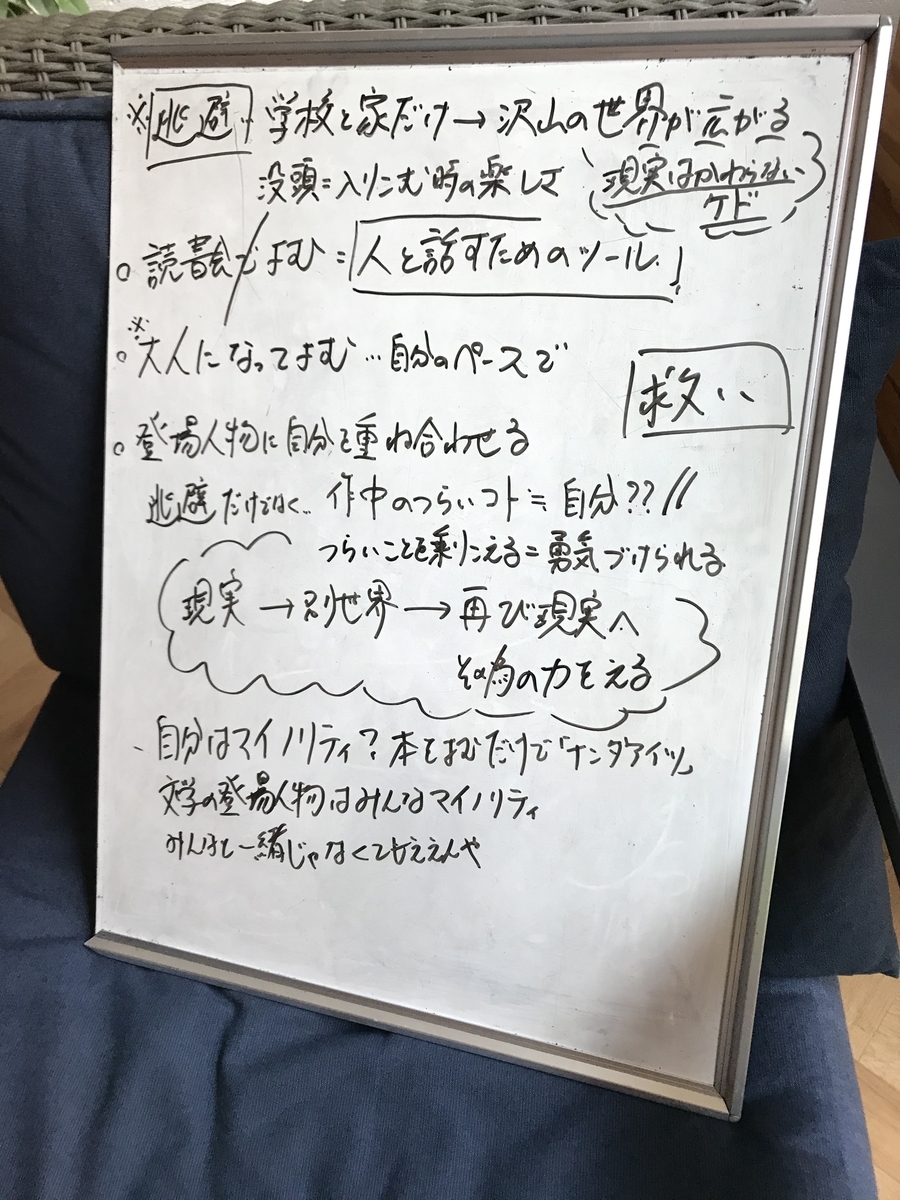 ※逃避 学校と家だけ→沢山の世界が広がる
没頭=入りこむ時の楽しさ
現実はかわらない
ケド
○読書会でよむ=人と話すためのツール」
※
○大人になってよむ…自分のペースで
救い
○登場人物に自分を重ね合わせる
逃避だけではなく… 作中のつらいコト≒自分??//
つらいことを乗りこえる=勇気づけられる
現実→別世界→再び現実へ
その為の力をえる
自分はマイノリティ?本をよむだけで「ナンダアイツ」
文学の登場人物はみんなマイノリティ
みんなと一緒じゃなくてもええんや